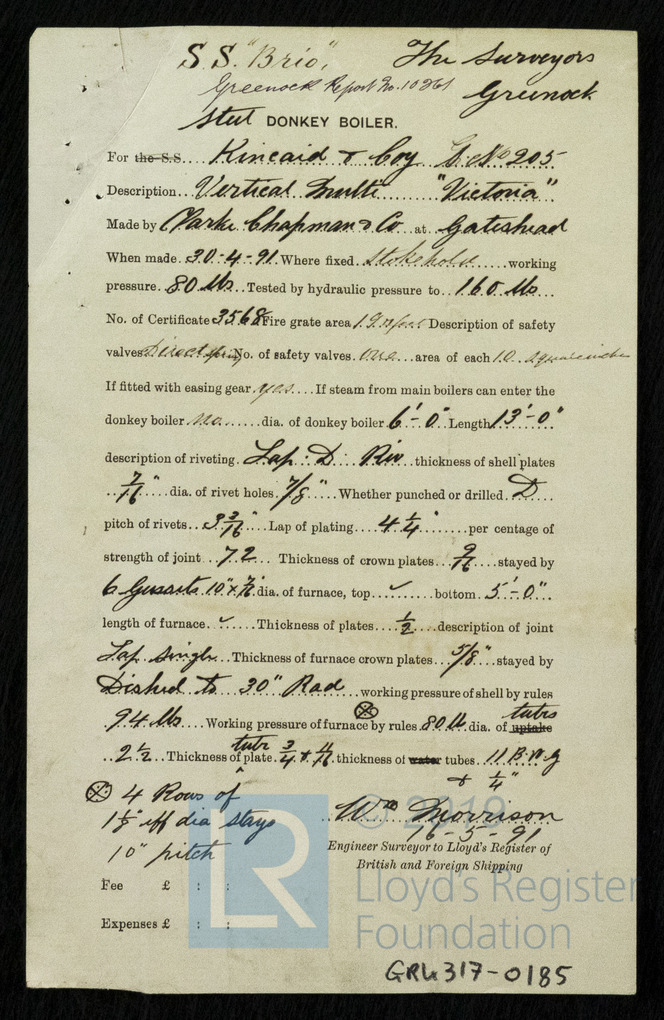 S.S. "Brio". The Surveyors
Greenock Report No. 10261 Greenock
Steel DONKEY BOILER.
For the S.S. Kincaid & Coy S. No 205
Description Vertical Multi "Victoria"
Made by Clarke Chapman & Co at Gateshead
When made 30-4-91 Where fixed Stokehold working
pressure 80 lbs Tested by hydraulic pressure to 160 lbs
No. of Certificate 3568 Fire grate area 19.12 feet Description of safety
valves Direct spring No. of safety valves one area of each 10 square inches
If fitted with easing gear yes If steam from main boilers can enter the
donkey boiler no dia. of donkey boiler 6'-0" Length 13'-0"
description of riveting Lap: D Riv thickness of shell plates
7/16" dia. of rivet holes 7/8" Whether punched or drilled D
pitch of rivets 3 3/16" Lap of plating 4 1/4" per centage of
strength of joint 72 Thickness of crown plates 9/16 stayed by
6 Gussets 10" x 7/16 dia. of furnace, top ✓ bottom 5'-0"
length of furnace ✓ Thickness of plates 1/2 description of joint
Lap single Thickness of furnace crown plates 5/8" stayed by
Dished to 30" Rad working pressure of shell by rules
94 lbs Working pressure of furnace ⊗ by rules 80 lb dia. of uptake tubes
2 1/2 Thickness of tube plate 3/4 & 11/16 thickness of water tubes 11 B.W.G
& 1/4"
⊗ 4 Rows of
1 1/8" eff dia stays
10" pitch
Wm Morrison
16-5-91
Engineer Surveyor to Lloyd's Register of
British and Foreign Shipping
Fee £ : :
Expenses £ : :
LR
© 2019
Lloyd's Register
Foundation
GRK317-0185